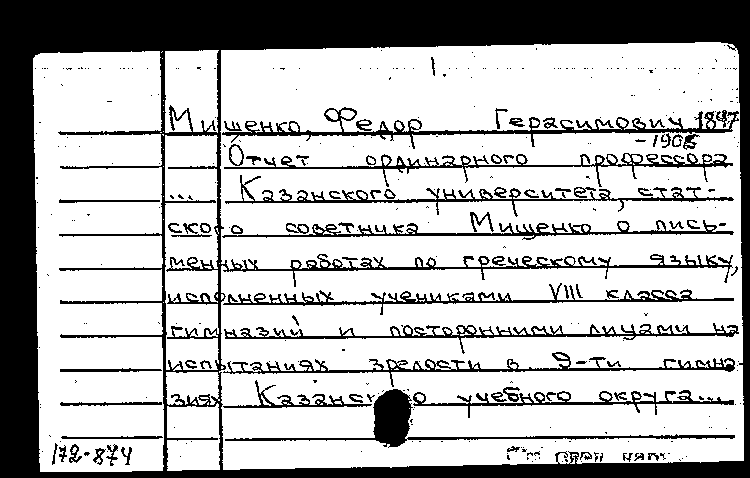 1.
Мищенко, Федор Герасимович 1847
-1906
Отчет ординарного профессора
... Казанского университета, стат-
ского советника Мищенко о пись-
менных работах по греческому языку,
исполненных учениками VIII класса
гимназий и посторонними лицами на
испытаниях зрелости в 9-ти гимна-
зиях Казанского учебного округа...
172-874
См след карт.